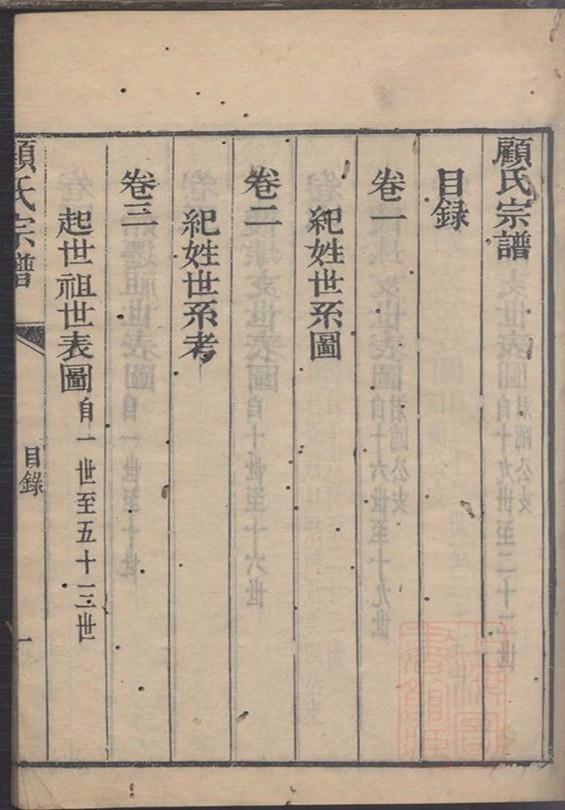 顧氏宗譜
目錄
卷一
紀姓世系圖
卷二
紀姓世系考
卷三
起世祖世表圖自一世至五十三世
顧氏宗譜
目錄
一